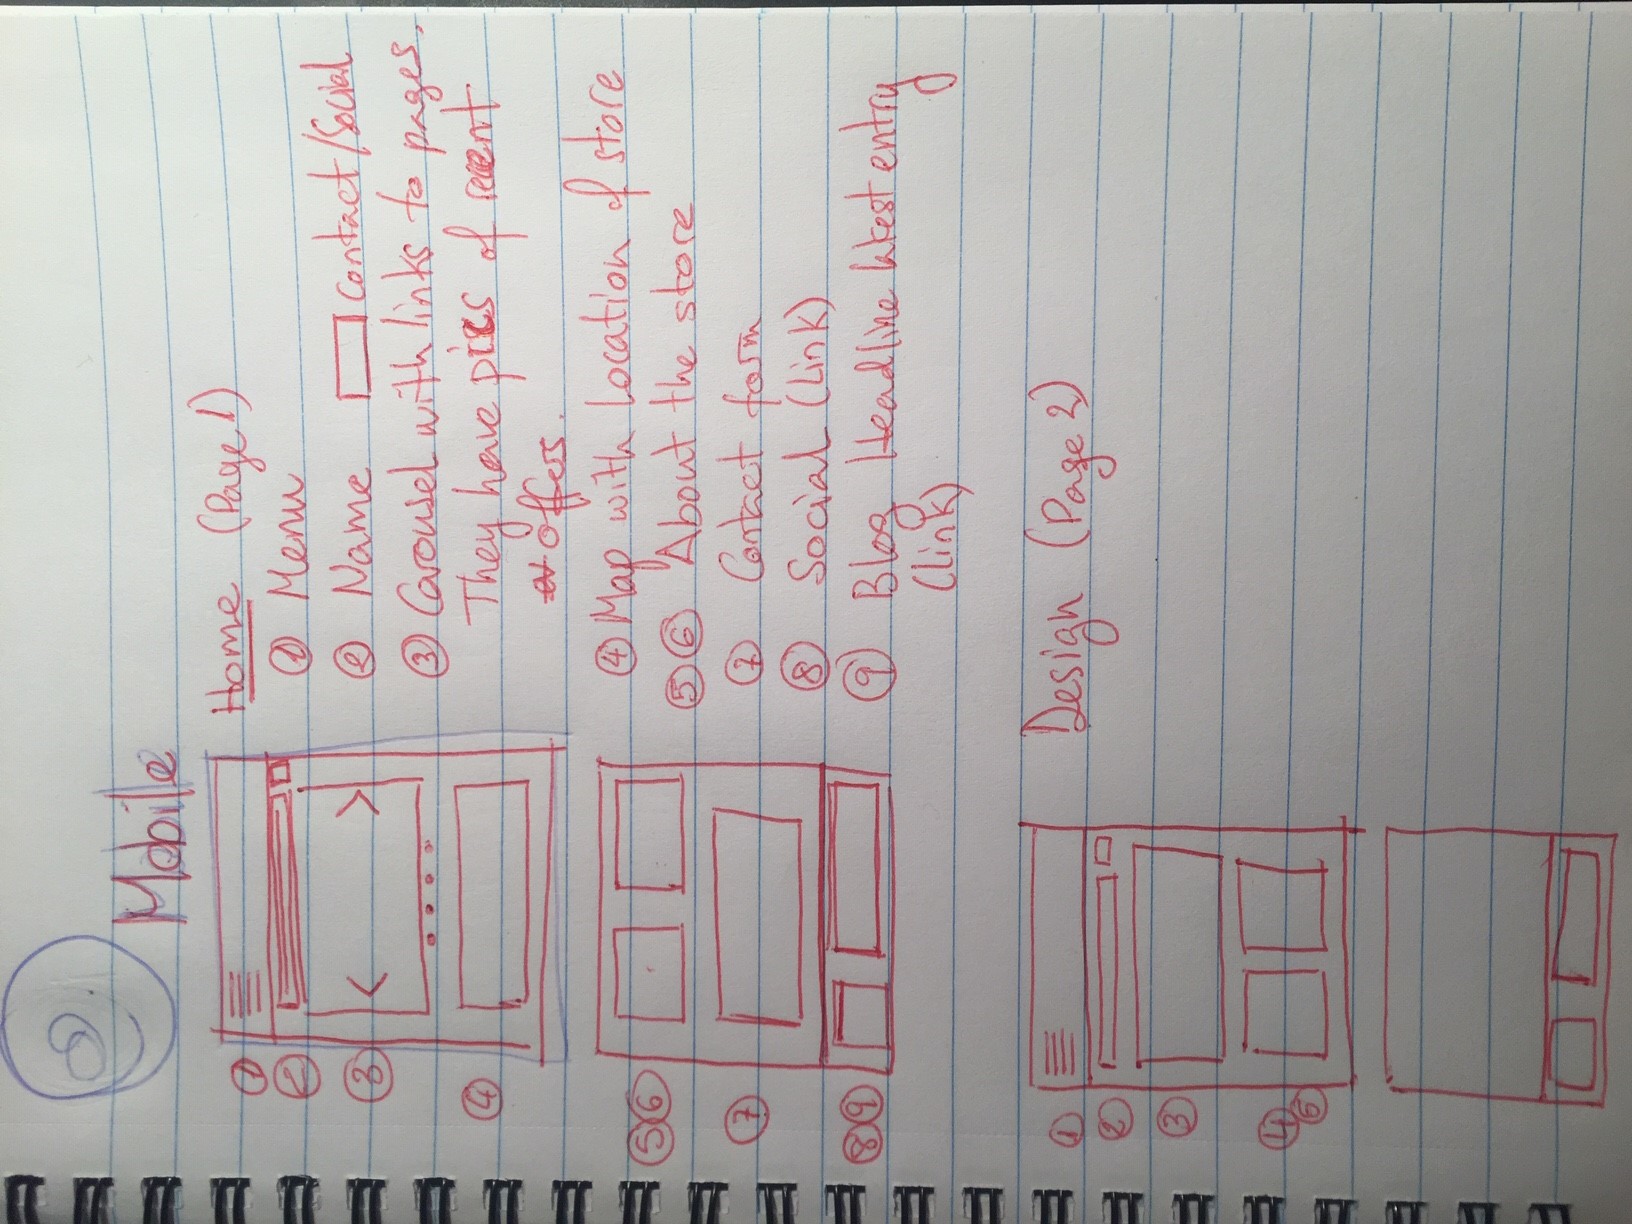 Mobile
Home (Page 1)
① Menu
② Name Contact/Social
③ Carousel with links to pages.
They have pics of recent
offers.
④ Map with Location of store
⑤ ⑥ About the store
⑦ Contact form
⑧ Social (Link)
⑨ Blog Headline latest entry
(link)
①
②
③
④
⑤⑥
⑦
⑧⑨
Design (Page 2)
①
②
③
④